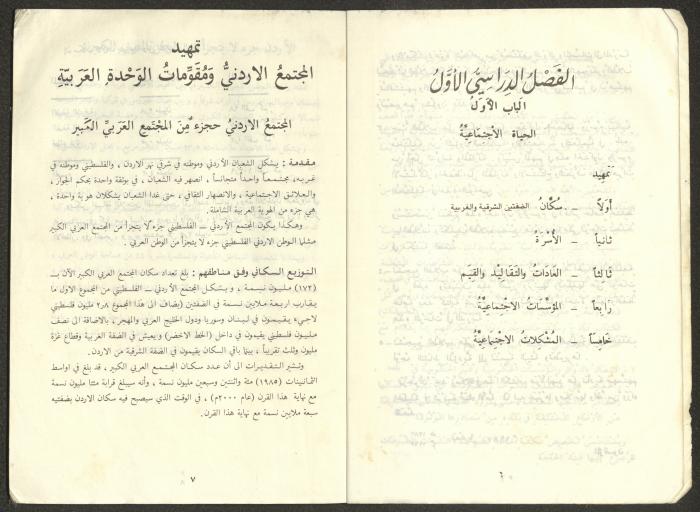 الفصل الدراسي الأول
الباب الأول
الحياة الاجتماعية
تمهيد
أولاً – سكان الضفتين الشرقية والغربية
ثانياً – الأسرة
ثالثاً – العادات والتقاليد والقيم
رابعاً – المؤسسات الاجتماعية
خامساً – المشكلات الاجتماعية
٦
تمهيد
المجتمع الاردني ومقومات الوحدة العربية
المجتمع الاردني كجزء من المجتمع العربي الكبير
مقدمة : يشكل الشعبان الأردني وموطنه في شرقي نهر الاردن ، والفلسطيني وموطنه في
غربه، مجتمعاً واحداً متجانساً ، انصهر فيه الشعبان ، في بوتقة واحدة بحكم الجوار ،
والعلائق الاجتماعية ، والانصهار الثقافي ، حتى غدا الشعبان يشكلان هوية واحدة ،
هي جزء من الهوية العربية الشاملة.
وهكذا يكون المجتمع الأردني – الفلسطيني جزء لا يتجزأ من المجتمع العربي الكبير
مثلما الوطن الاردني الفلسطيني جزء لا يتجزأ من الوطن العربي .
التوزيع السكاني وفق مناطقهم : بلغ تعداد سكان المجتمع العربي الكبير الآن بـ
(١٧٢) مليون نسمة ، ويشكل المجتمع الأردني – الفلسطيني من المجموع الاول ما
يقارب اربعة ملايين نسمة في الضفتين (يضاف الى هذا المجموع ٢٫٨ مليون فلسطيني
لاجىء يقيمون في لبنان وسوريا ودول الخليج العربي والمهجر ، بالاضافة الى نصف
مليون فلسطيني يقيمون في داخل (الخط الاخضر) ويعيش في الضفة الغربية وقطاع غزة
مليون وثلث تقريباً ، بينما باقي السكان يقيمون في الضفة الشرقية من الاردن.
وتشير التقديرات الى أن عدد سكان المجتمع العربي الكبير ، قد بلغ في اواسط
الثمانينات (١٩٨٥) مئة واثنتين وسبعين مليون نسمة ، وأنه سيبلغ قرابة مئتا مليون نسمة
مع نهاية هذا القرن (عام ٢٠٠٠م) ، في الوقت الذي سيصبح فيه سكان الاردن بضفتيه
سبعة ملايين نسمة مع نهاية هذا القرن.
٧